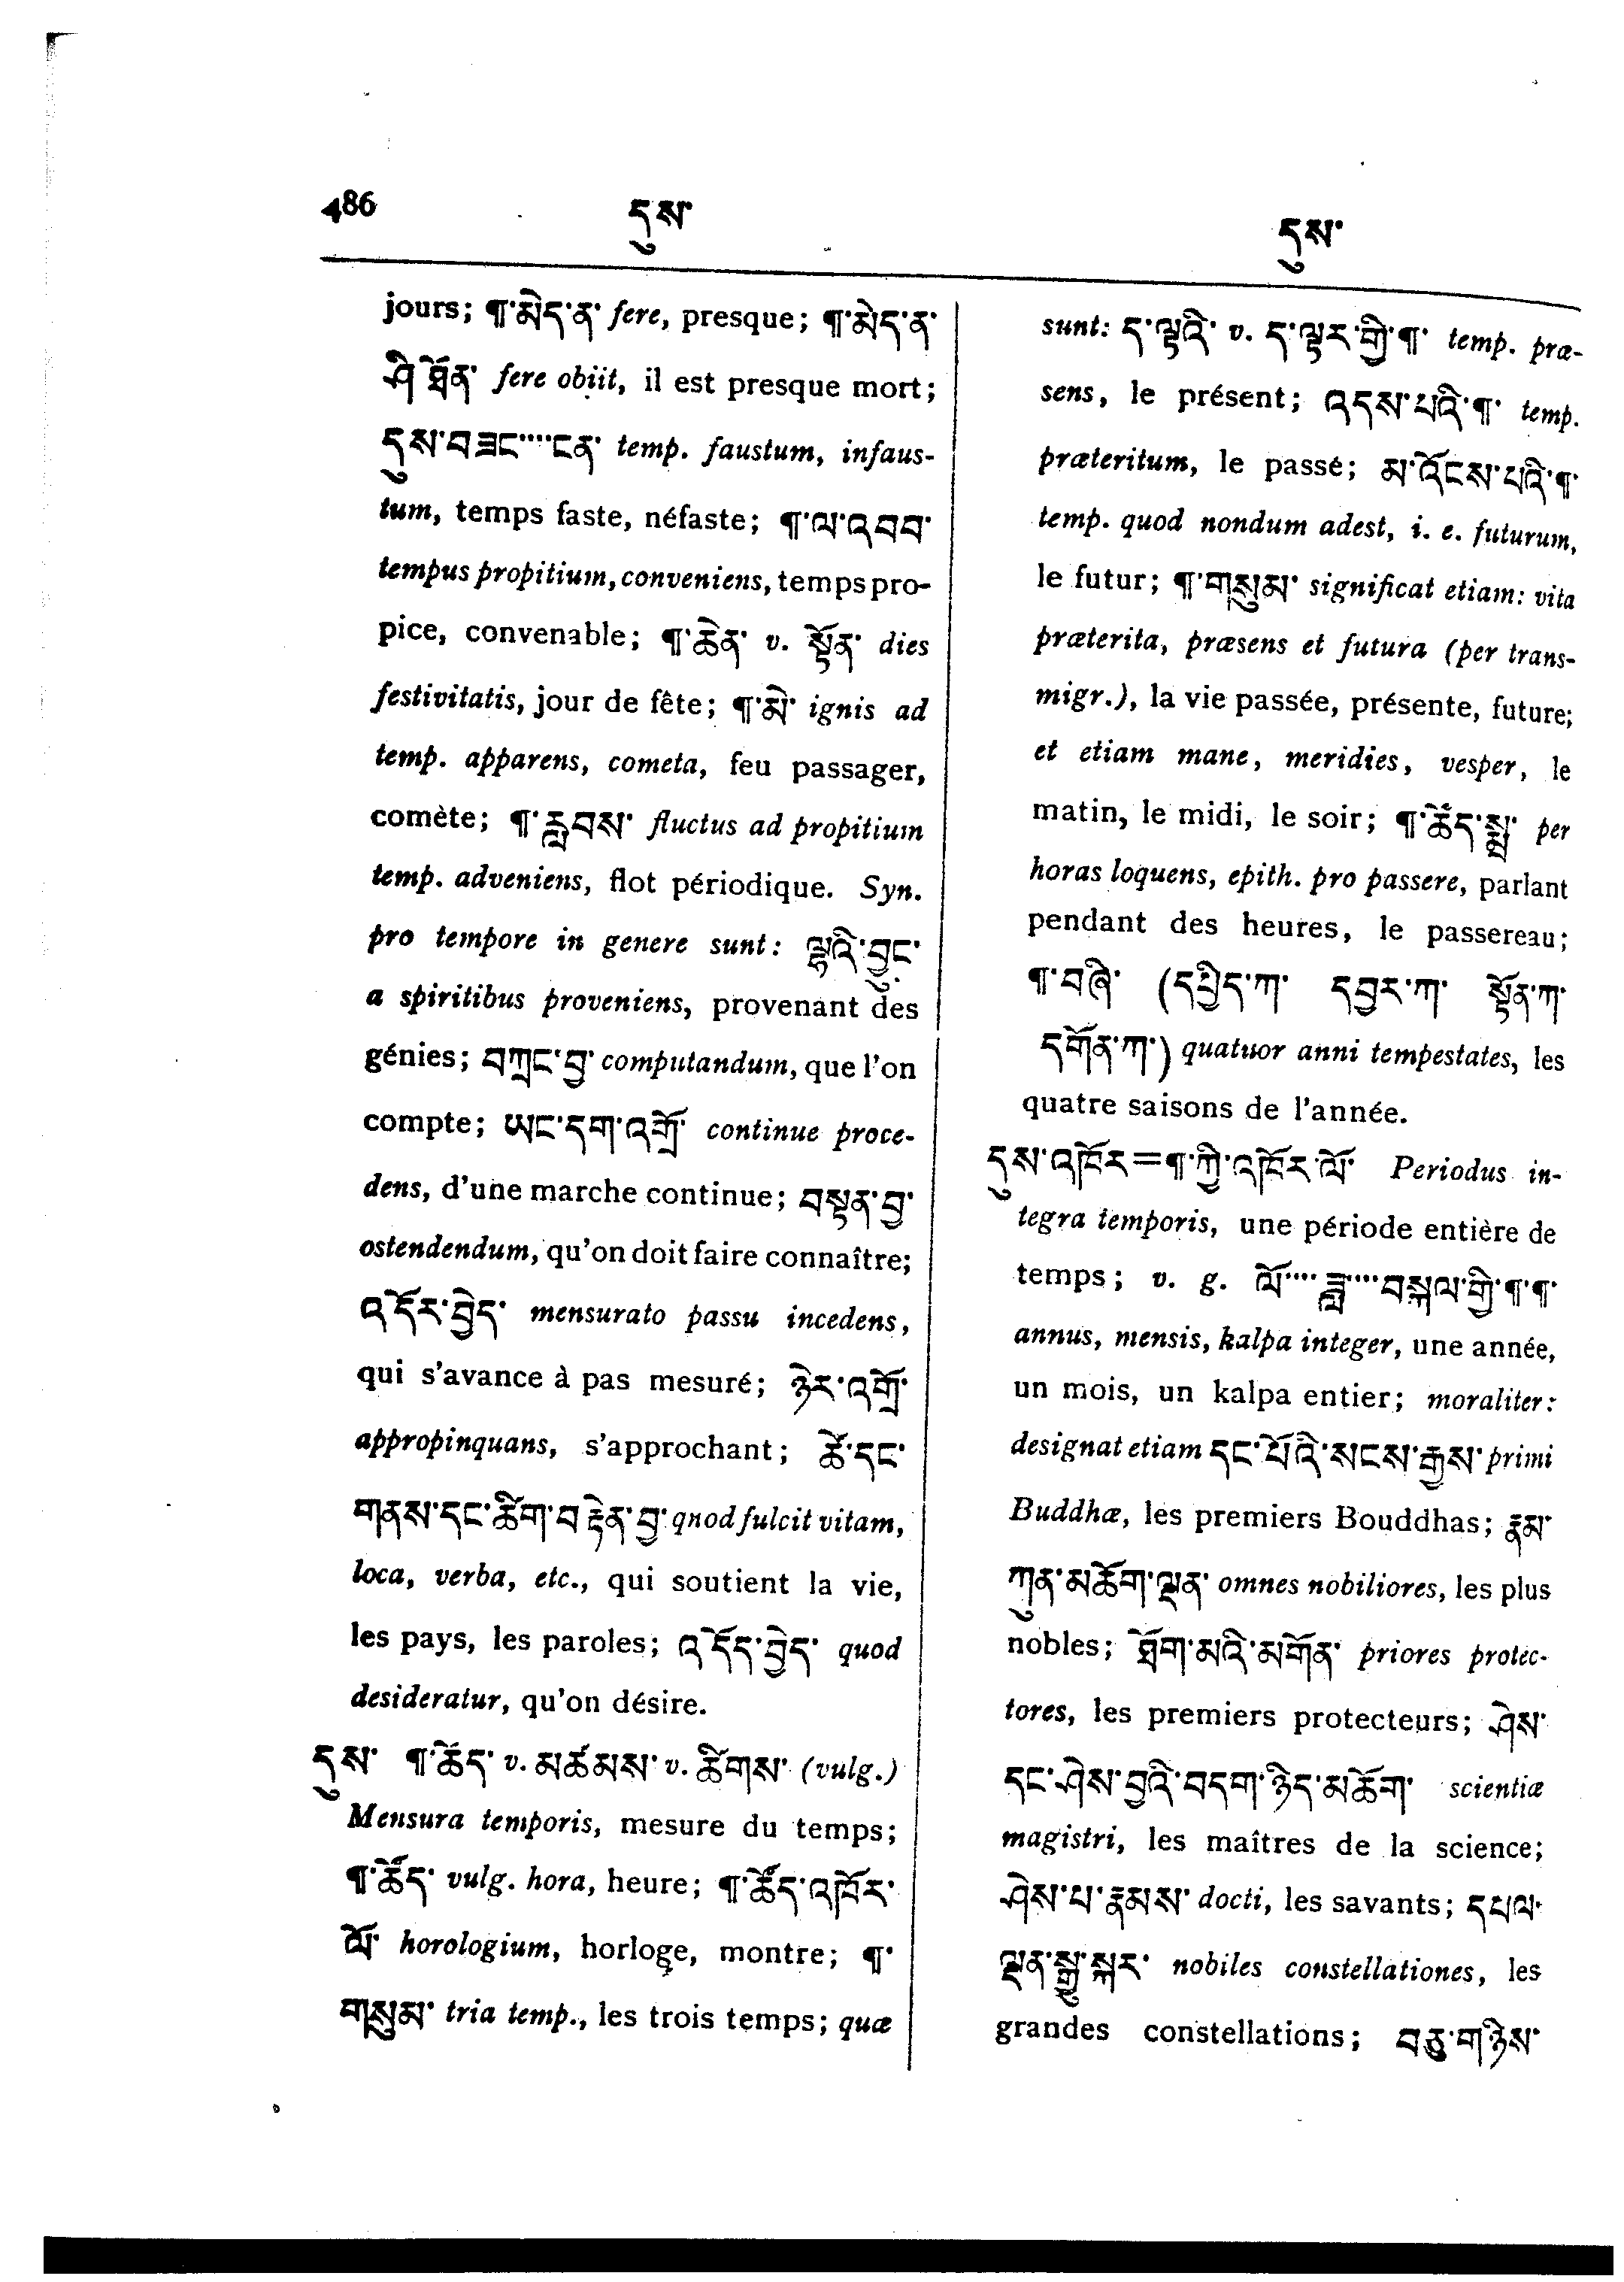 486
དུས་
དུས་
jours; ¶་མེད་ན་ fere, presque; ¶་མེད་ན་
ཤི་ཐོན་ fere obiit, il est presque mort;
དུས་བཟང་····ངན་ temp. faustum, infaus-
tum, temps faste, néfaste; ¶་ལ་འབབ་
tempus propitium, conveniens, temps pro-
pice, convenable; ¶་ཆེན་ v. སྟོན་ dies
festivitatis, jour de fête; ¶་མེ་ ignis ad
temp. apparens, cometa, feu passager,
comète; ¶་རླབས་ fluctus ad propitium
temp. adveniens, flot périodique. Syn.
pro tempore in genere sunt: ལྷའི་བྱུང་
a spiritibus proveniens, provenant des
génies; བཀྲང་བྱ་ computandum, que l'on
compte; ཡང་དག་འགྲོ་ continue proce-
dens, d'une marche continue; བསྟན་བྱ་
ostendendum, qu'on doit faire connaître;
འདོར་བྱེད་ mensurato passu incedens,
qui s'avance à pas mesuré; ཉེར་འགྲོ་
appropinquans, s'approchant; ཚེ་དང་
གནས་དང་ཚིག་བརྟེན་བྱ་ qnod fulcit vitam,
loca, verba, etc., qui soutient la vie,
les pays, les paroles; འདོད་བྱེད་ quod
desideratur, qu'on désire.
དུས་ ¶་ཚོད་ v. མཚམས་ v. ཚིགས་ (vulg.)
Mensura temporis, mesure du temps;
¶་ཚོད་ vulg. hora, heure; ¶་ཚོད་འཁོར་
ལོ་ horologium, horloge, montre; ¶་
གསུམ་ tria temp., les trois temps; quæ
sunt: ད་ལྟའི་ v. ད་ལྟར་གྱི་¶་ temp. præ-
sens, le présent; འདས་པའི་¶་ temp.
præteritum, le passé; མ་འོངས་པའི་¶་
temp. quod nondum adest, i. e. futurum,
le futur; ¶་གསུམ་ significat etiam: vita
præterita, præsens et futura (per trans-
migr.), la vie passée, présente, future;
et etiam mane, meridies, vesper, le
matin, le midi, le soir; ¶་ཚོད་སྨྲ་ per
horas loquens, epith. pro passere, parlant
pendant des heures, le passereau;
¶་བཞི་ (དཔྱིད་ཀ་ དབྱར་ཀ་ སྟོན་ཀ་
དགོན་ཀ་) quatuor anni tempestates, les
quatre saisons de l'année.
དུས་འཁོར=¶་ཀྱི་འཁོར་ལོ་ Periodus in-
tegra temporis, une période entière de
temps; v. g. ལོ་····ཟླ་····བསྐལ་གྱི་¶་¶་
annus, mensis, kalpa integer, une année,
un mois, un kalpa entier; moraliter:
designat etiam དང་པོའི་སངས་རྒྱས་ primi
Buddhæ, les premiers Bouddhas; རྣམ་
ཀུན་མཆོག་ལྡན་ omnes nobiliores, les plus
nobles; ཐོག་མའི་མགོན་ priores protec-
tores, les premiers protecteurs; ཤེས་
དང་ཤེས་བྱའི་བདག་ཉིད་མཆོག་ scientiæ
magistri, les maîtres de la science;
ཤེས་པ་རྣམས་ docti, les savants; དཔལ་
ལྡན་རྒྱུ་སྐར་ nobiles constellationes, les
grandes constellations; བཅུ་གཉིས་